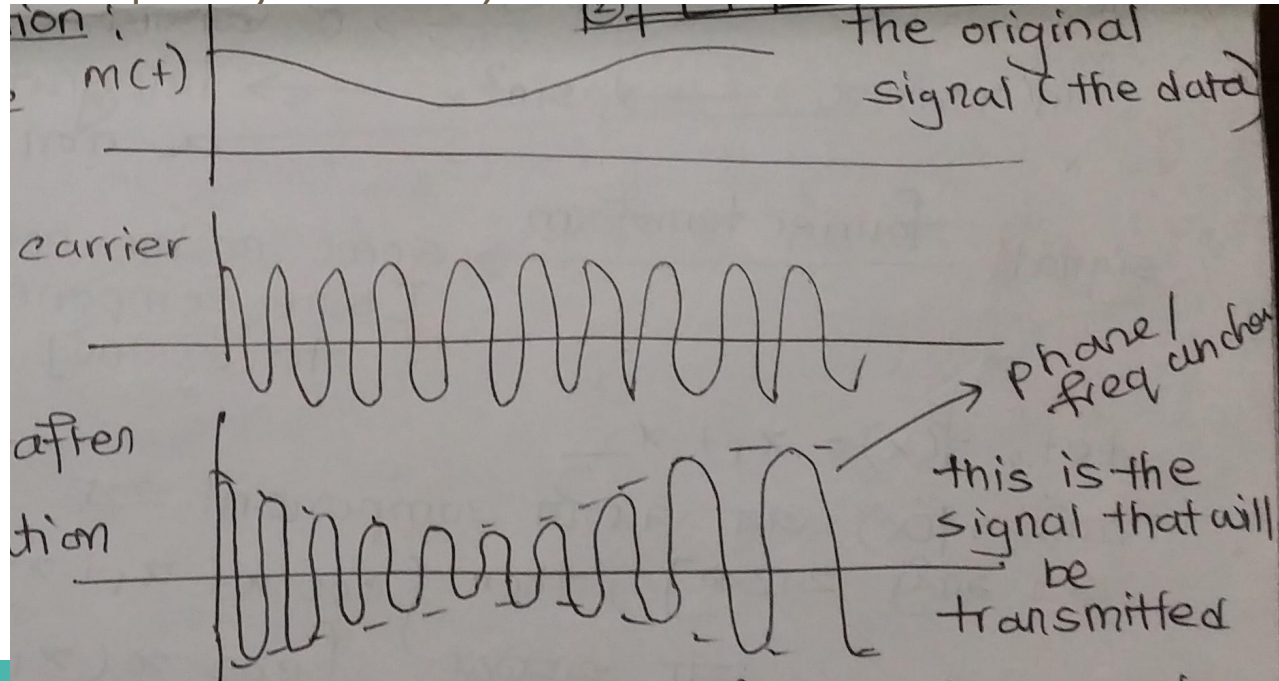 ion :
the original
m(t)
signal (the data)
carrier
phase/
freq
after
this is the
tion
signal that will
be
transmitted